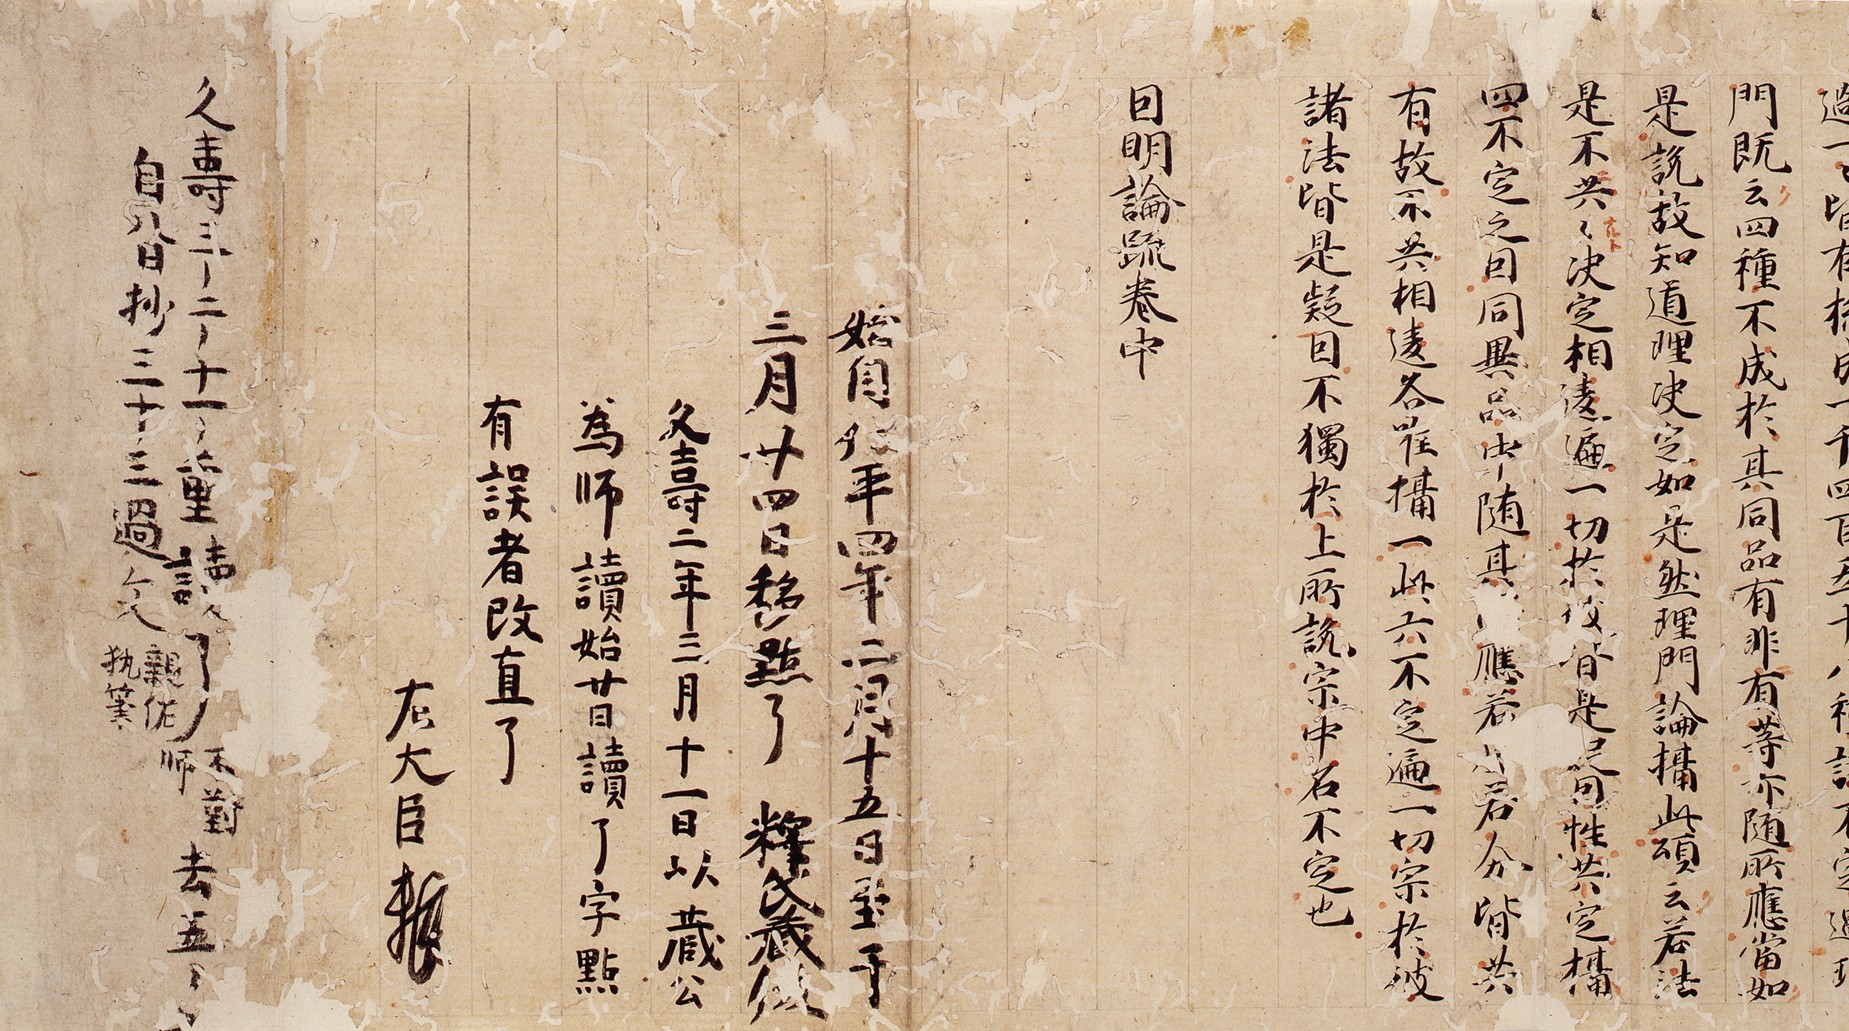 過一〻皆有於成一千四百五十八種諸不定過理
門既云四種不成於其同品有非有等亦随所應當如
是説故知道理决定如是然理門論攝此頌云若法
是不共〻决定相違遍一切於彼皆是疑因性共定攝
四不定之因同異品中随其應若 若分皆共
有故不共相違各唯攝一此六不定遍一切宗於彼
諸法皆是疑因不獨於上所説宗中名不定也
因明論疏卷中
始自仁平四年二月十五日至于
三月廿四日移點了 釋氏蔵俊
久壽二年三月十一日以蔵公
為師讀始廿日讀了字點
有誤者改直了
左大臣
久壽三二十一重讀了不對師去五
自八日抄三十三過 親佐執筆